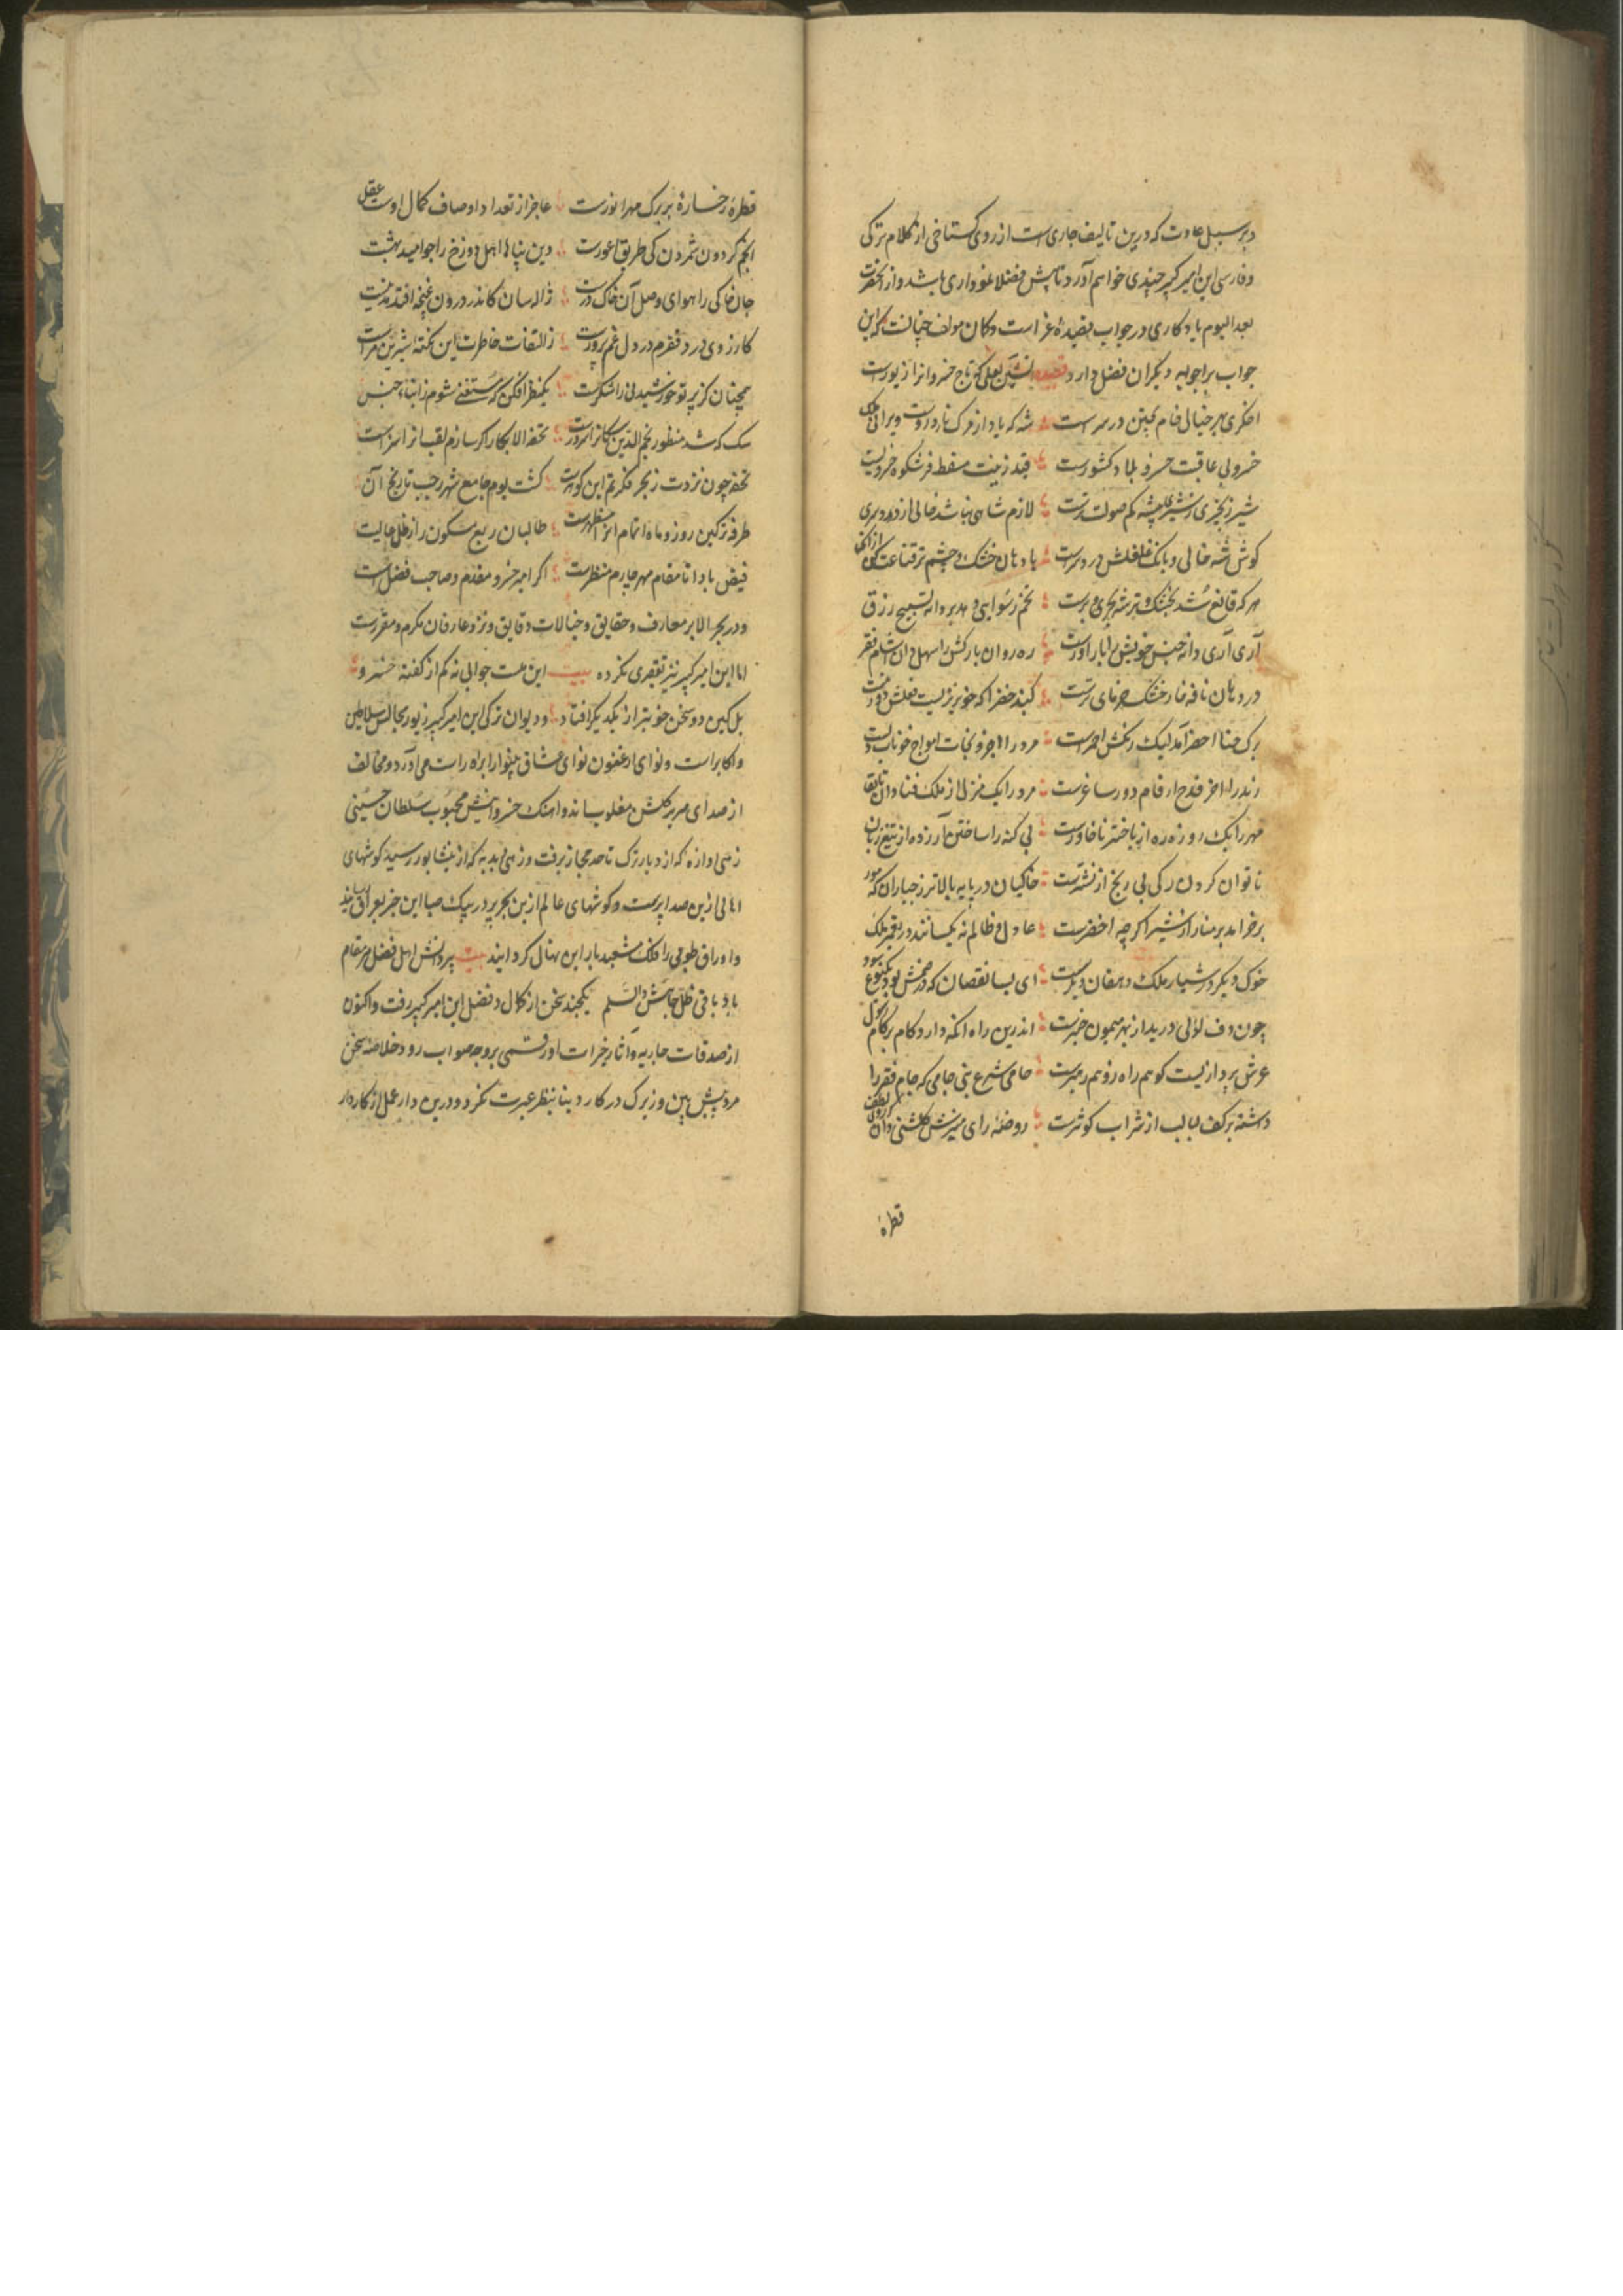 و بر سبیل عادت که درین تالیف جاری است از روی گستاخی از کلام ترکی
و فارسی این امیر کبیر چیزی خواهم آورد تا پیش فضلا نموداری باشد و از آنحضرت
بعد الیوم یادگاری در جواب قصیدهٔ غراست و کان مولف چنانست که این
جواب بر اجوبه دیگران فضل دارد قصیده آتشین لعلی که تاج خسروانرا زیورست
اخکری بهر خیال خام پختن در سرست شه که یاد از مرگ نارد زوست ویرانی ملک
خسرو بی عاقبت خسر و بلاد کشورست قید زینت مسقط فر و شکوه خسرویست
شیر زنجیری ز شیر بیشه کم صولت ترست لازم شاهی نباشد خالی از دردسری
کوش شه خالی و بانک غلغلش درد سرست با دهان خشک و چشم تر قناعت کن از آنک
هر که قانع شد بخشک و تر شه بحر و برست تخم رسوایی دهد بر دانهٔ تسبیح رزق
آری آری دانه جنس خویش را بار آورست ره روان بارکش را سهل دان آشام فقر
در دهان ناقه خار خشک خرمای ترست گنبد خضرا که خونریزیست فعلش دور نیست
برک حنا اخضر آمد لیک رنگش احمرست مرد را اجر و نجات امواج خوناب دلست
رند را از قدح ارقام دور ساغرست مرد را یک منزل از ملک فنا دان تا بقا
مهر را یک روزه ره از باختر تا خاورست بی گنه را ساختن آزرده از تیغ زبان
ناتوان کردن رگی بی رنج از نشترست خاکیان در پایه بالاتر ز جباران که مور
بر خرامد بر منار از شیر اگر چه اخضرست عادل و ظالم نه یکسانند در تعمیر ملک
خوک دیگر در شیار ملک و دهقان دیگرست ای بسا نقصان که در ضمنش بود یکنوع سود
چون دف لولی درید از بهر میمون چنبرست اندرین راه آنکه دارد گام بر گام رسول
عرش پرواز نیست کو هم راه رو هم رهبرست حامی شرع نبی جامی که جام فقر را
داشته بر کف لبالب از شراب کوثرست روضهٔ رای منیرش گلشنی دان کز لطف
قطرهٔ
قطرهٔ رخسارهٔ هر برگ مهر انورست عاجز از تعداد اوصاف کمال اوست عقل
انجم گردون شمردن کی طریق اعورست دین پناها اهل دوزخ را چو امید بهشت
جان خاکی را هوای وصل آن خاک درست ژاله سان کاندر درون غنچه افتد مدتیست
کارزوی درد فقرم در دل غم پرورست ز التفات خاطرت این نکته شیرین مراست
همچنان کز پرتو خورشید نی را شکرست یکنظر افکن که مستغنی شوم ز ابنای جنس
سگ که شد منظور نجم الدین سگانرا سرورست تحفه الافکار اگر سازم لقب انرا سزاست
تحفه چون نزدت ز بحر فکرتم این گوهرست گشت یوم جامع شهر رجب تاریخ آن
طرفه تر کین روز و ماه اتمام انرا مظهرست طالبان ربع مسکون را ز ظل عالیت
فیض بادا تا مقام مهر چارم منظرست اگر امیر خسرو مقدم و صاحب فضل است
و در بحر الابرار معارف و حقایق و خیالات و دقایق و نزد عارفان مکرم و مقررست
اما این امیر کبیر نیز تقصیری نکرده بیت این هست جوابی نه کم از گفتهٔ خسرو
بل کین دو سخن خوبتر از یکدیگر افتاد و دیوان ترکی این امیر کبیر زیور مجالس سلاطین
و اکابر است و نوای ارغنون نوای عشاق بینوا را براه راست می آرد و مخالف
از صدای صریر کلکش مغلوب ماند و اهنک خسروانیش محبوب سلطان حسینی
زهی اوازه که از دیار ترک تا حد حجاز برفت و زهی بدبه که از نیشابور رسید گوشهای
اهالی ازین صدا پرست و گوشهای عالم ازین بحر پر در پیک صبا این خبر بعراق رسانید
و اوراق طوبی را فلک مشعبد بار این نهال گردانید بیت پیر دانش اهل فضل هر مقام
باد باقی ظل جاهش والسلم یکچند سخن از کمال و فضل این امیر کبیر رفت و اکنون
از صدقات جاریه و آثار خیرات او رقمی بر وجه صواب رود خلاصهٔ سخن
مرد پیش بین و زیرک در کار دنیا بنظر عبرت نگرد و درین دار عمل از کاردار